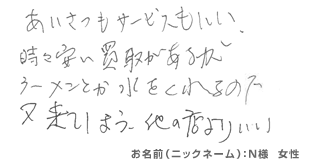 あいさつもサービスもいい、
時々安い買取があるが
ラーメンとか水をくれるので
又来てしまう、他の店よりいい
お名前（ニックネーム）：N様　女性